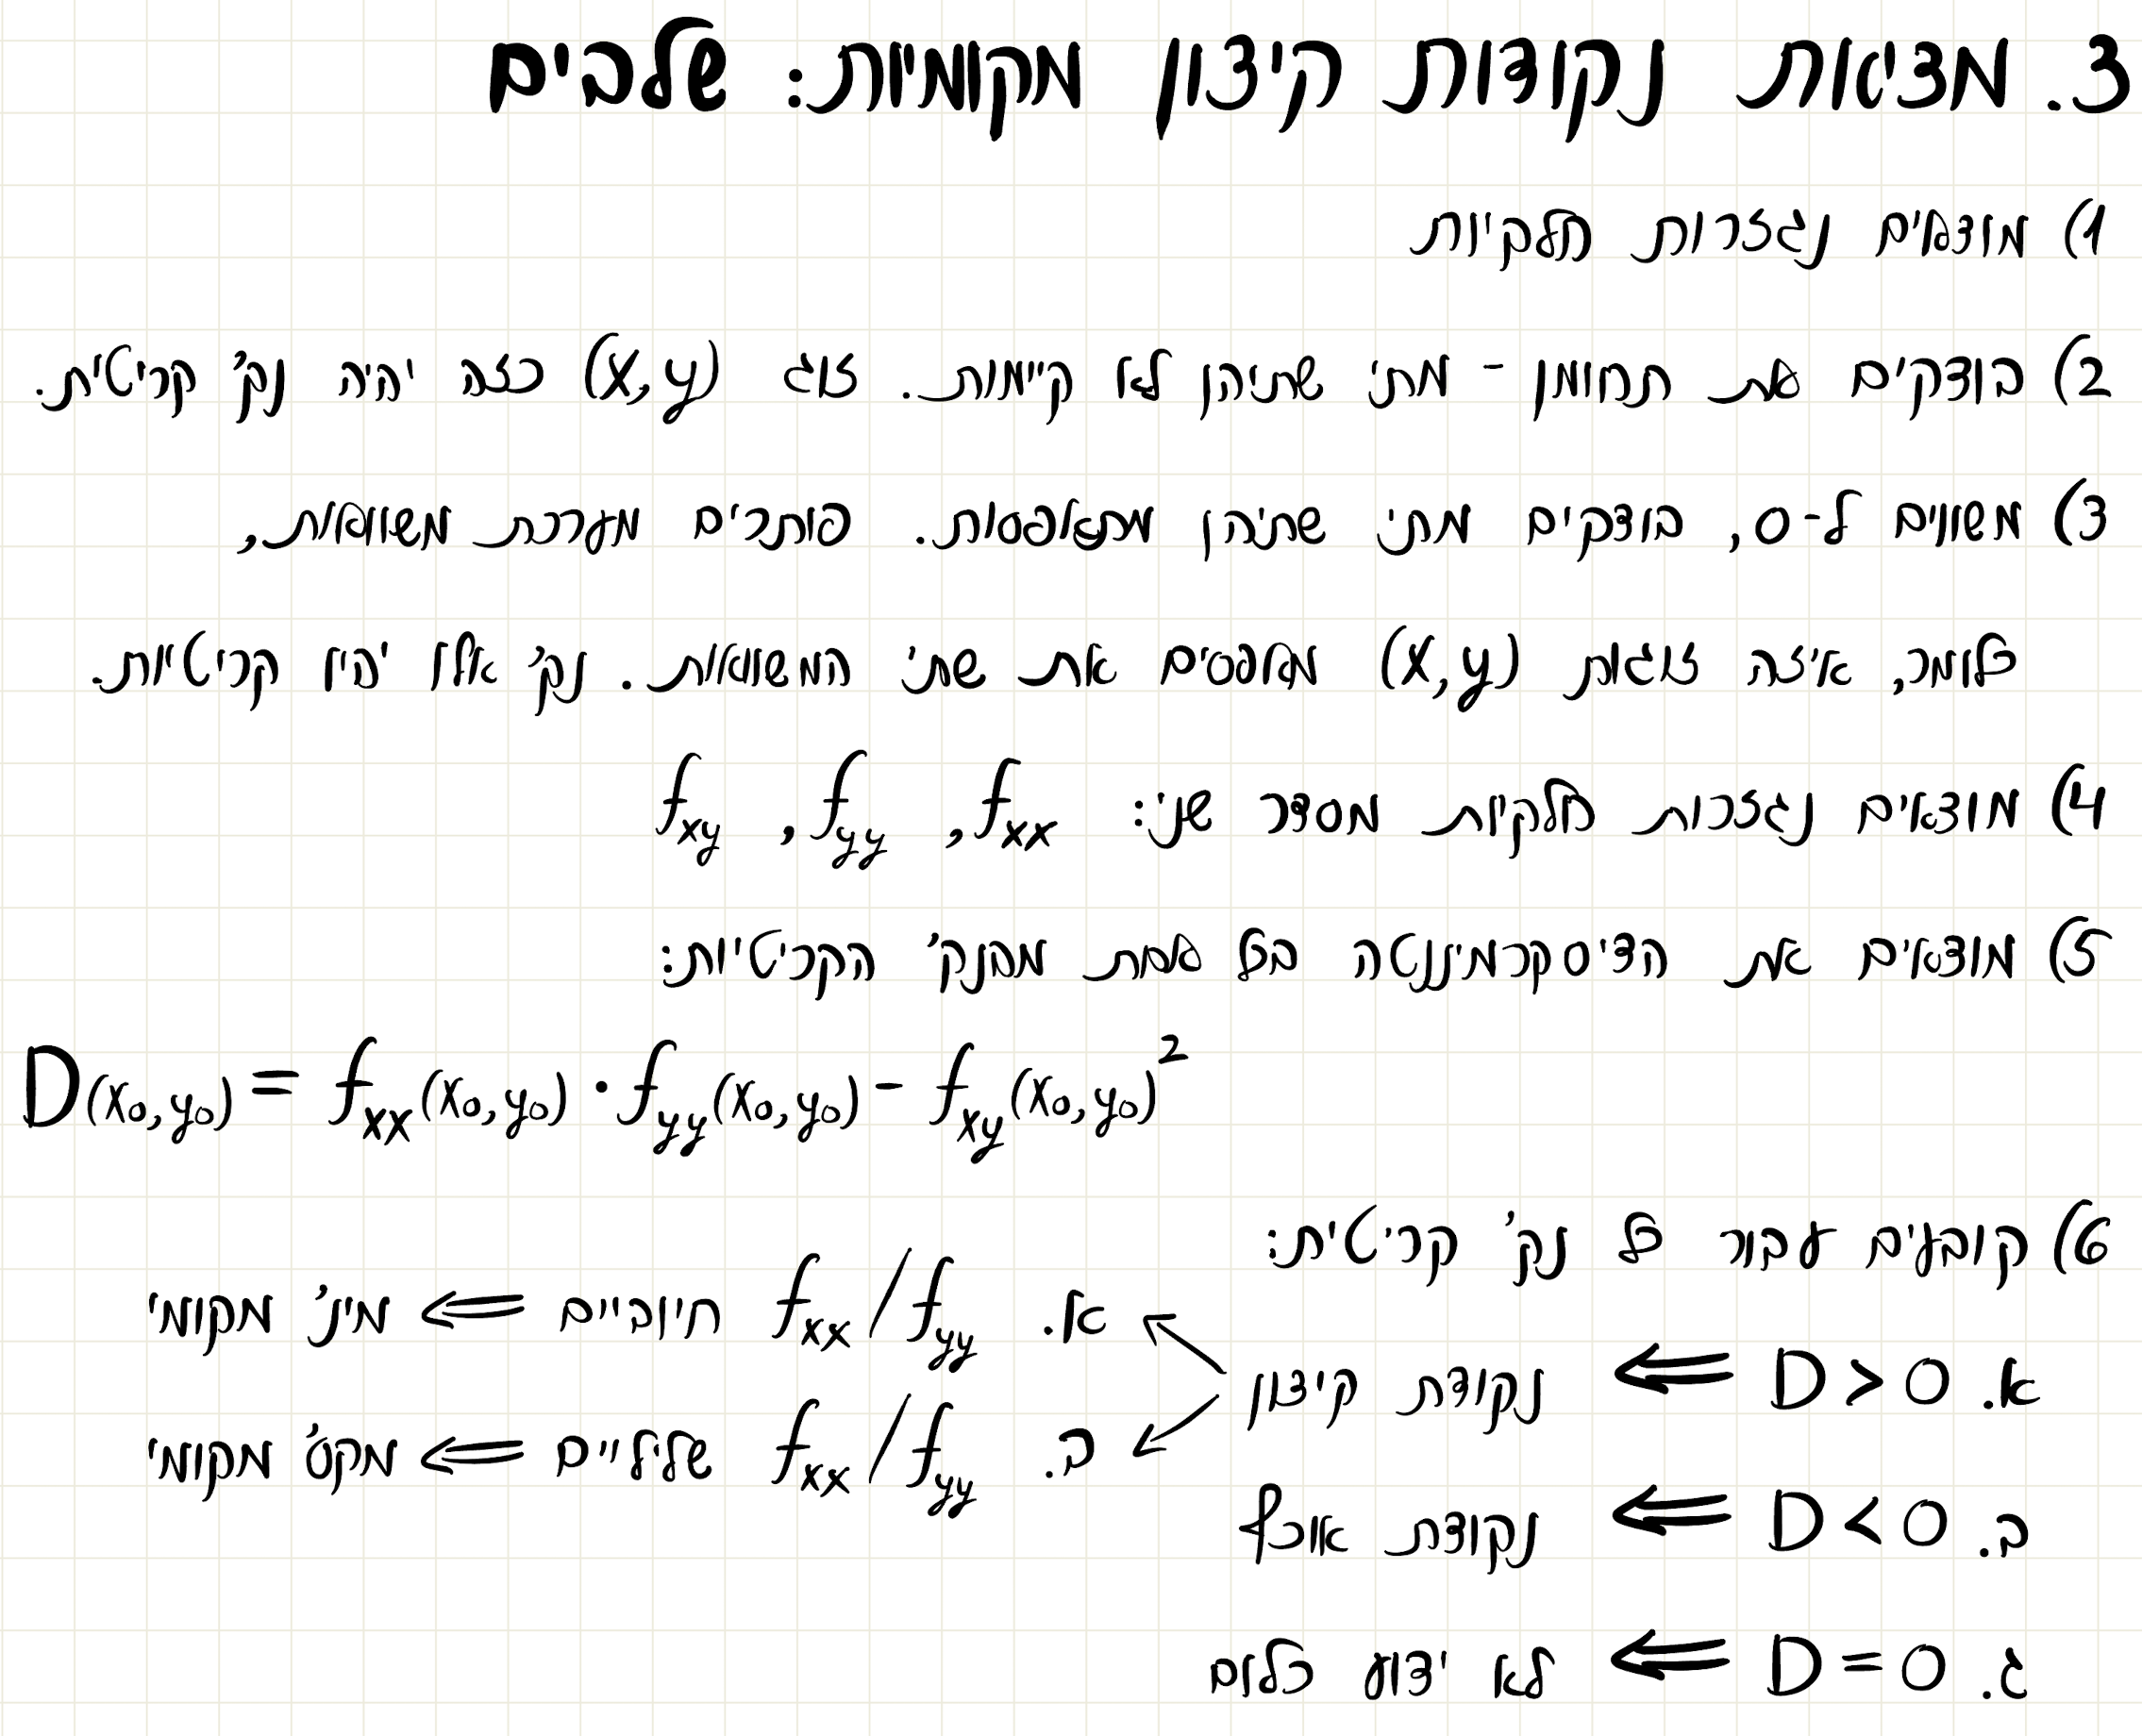 3. מציאת נקודות קיצון מקומיות: שלבים
1) מוצאים נגזרות חלקיות
2) בודקים את תחומן - מתי שתיהן לא קיימות. זוג (x,y) כזה יהיה נק' קריטית.
3) משווים ל-0, בודקים מתי שתיהן מתאפסות. פותרים מערכת משוואות,
כלומר, איזה זוגות (x,y) מאפסים את שתי המשוואות. נק' אלו יהיו קריטיות.
4) מוצאים נגזרות חלקיות מסדר שני: f_xx, f_yy, f_xy
5) מוצאים את הדיסקרמיננטה בכל אחת מהנק' הקריטיות:
D(x₀,y₀) = f_xx(x₀,y₀) · f_yy(x₀,y₀) - f_xy(x₀,y₀)²
6) קובעים עבור כל נק' קריטית:
א. D > 0 ⇐ נקודת קיצון
א. f_xx/f_yy חיוביים ⇐ מינ' מקומי
ב. f_xx/f_yy שליליים ⇐ מקס' מקומי
ב. D < 0 ⇐ נקודת אוכף
ג. D = 0 ⇐ לא ידוע כלום